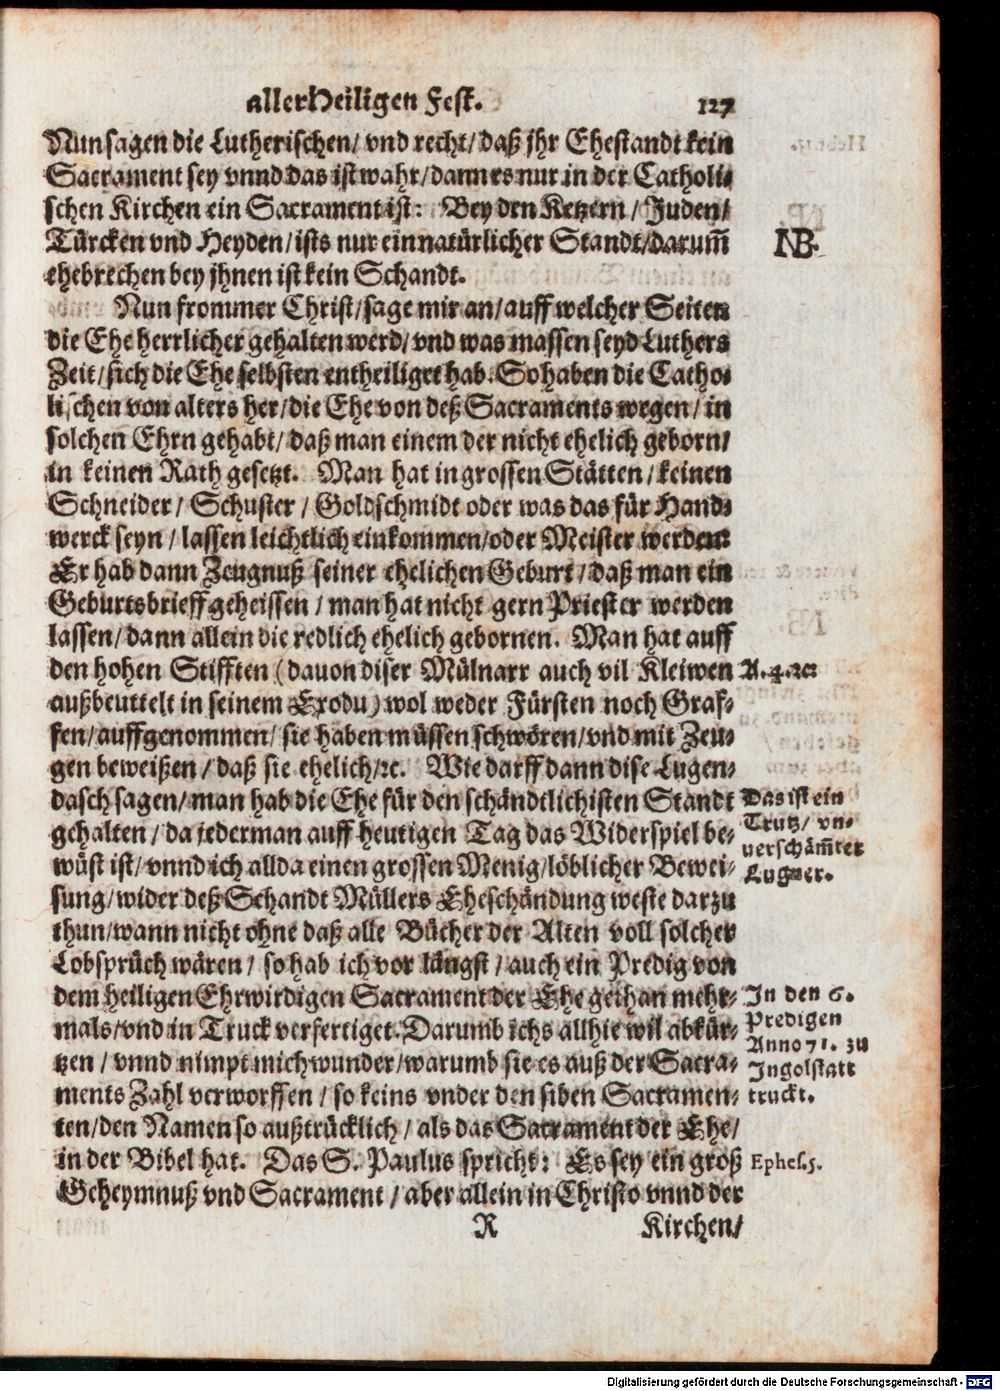 allerHeiligen Fest. 127
Nun sagen die Lutherischen/ vnd recht/ daß jhr Ehestandt kein
Sacrament sey vnnd das ist wahr/ dann es nur in der Catholi-
schen Kirchen ein Sacrament ist: Bey den Ketzern / Juden/
Türcken vnd Heyden/ ists nur ein natürlicher Standt/ darum̃
NB.
ehebrechen bey jhnen ist kein Schandt.
Nun frommer Christ/ sage mir an/ auff welcher Seiten
die Ehe herrlicher gehalten werd/ vnd was massen seyd Luthers
Zeit/ sich die Ehe selbsten entheiliget hab. So haben die Catho-
lischen von alters her/ die Ehe von deß Sacraments wegen/ in
solchen Ehrn gehabt/ daß man einem der nicht ehelich geborn/
in keinen Rath gesetzt. Man hat in grossen Stätten/ keinen
Schneider/ Schuster / Goldschmidt oder was das für Hand-
werck seyn / lassen leichtlich einkommen/ oder Meister werden:
Er hab dann Zeugnuß seiner ehelichen Geburt / daß man ein
Geburtsbrieff geheissen / man hat nicht gern Priester werden
lassen/ dann allein die redlich ehelich gebornen. Man hat auff
den hohen Stifften (dauon diser Mülnarr auch vil Kleiwen
A. 4. ꝛc.
außbeuttelt in seinem Exodu) wol weder Fürsten noch Graf-
fen/ auffgenommen/ sie haben müssen schwören/ vnd mit Zeu-
gen beweißen / daß sie ehelich/ ꝛc. Wie darff dann dise Lugen-
dasch sagen/ man hab die Ehe für den schändtlichisten Standt
gehalten / da jederman auff heutigen Tag das Widerspiel be-
wüst ist/ vnnd ich allda einen grossen Menig/ löblicher Bewei-
Das ist ein
Trutz/ vn-
uerschäm̃ter
Lugner.
sung/ wider deß Schandt Müllers Eheschändung weste darzu
thun/ wann nicht ohne daß alle Bücher der Alten voll solcher
Lobsprüch wären / so hab ich vor längst / auch ein Predig von
dem heiligen Ehrwirdigen Sacrament der Ehe gethan mehr-
mals/ vnd in Truck verfertiget. Darumb ichs allhie wil abkür-
tzen / vnnd nimpt mich wunder/ warumb sie es auß der Sacra-
ments Zahl verworffen / so keins vnder den siben Sacramen-
In den 6.
Predigen
Anno 71. zu
Ingolstatt
truckt.
ten/ den Namen so außtrücklich / als das Sacrament der Ehe/
in der Bibel hat. Das S. Paulus spricht: Es sey ein groß
Ephes. 5.
Geheymnuß vnd Sacrament / aber allein in Christo vnnd der
R Kirchen/
Digitalisierung gefördert durch die Deutsche Forschungsgemeinschaft - DFG